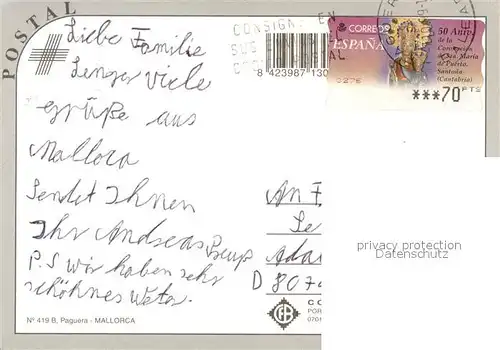 POSTAL
Liebe Familie
viele
grüße aus
Mallorca
Sendet Ihnen
Ihr Andreas
P.S wir haben sehr
schöhnes
CONSIGN EN
SUS
8 423987 130
0276
CORREOS
ESPAÑA
50 Aniv.
de la
Coronación
de Ntra. Sra. María
de Puerto,
Santoña
(Cantabria)
***70 PTS
An F
Ada
D 807
privacy protection
Datenschutz
Nº 419 B, Paguera - MALLORCA
CO
POR
0701